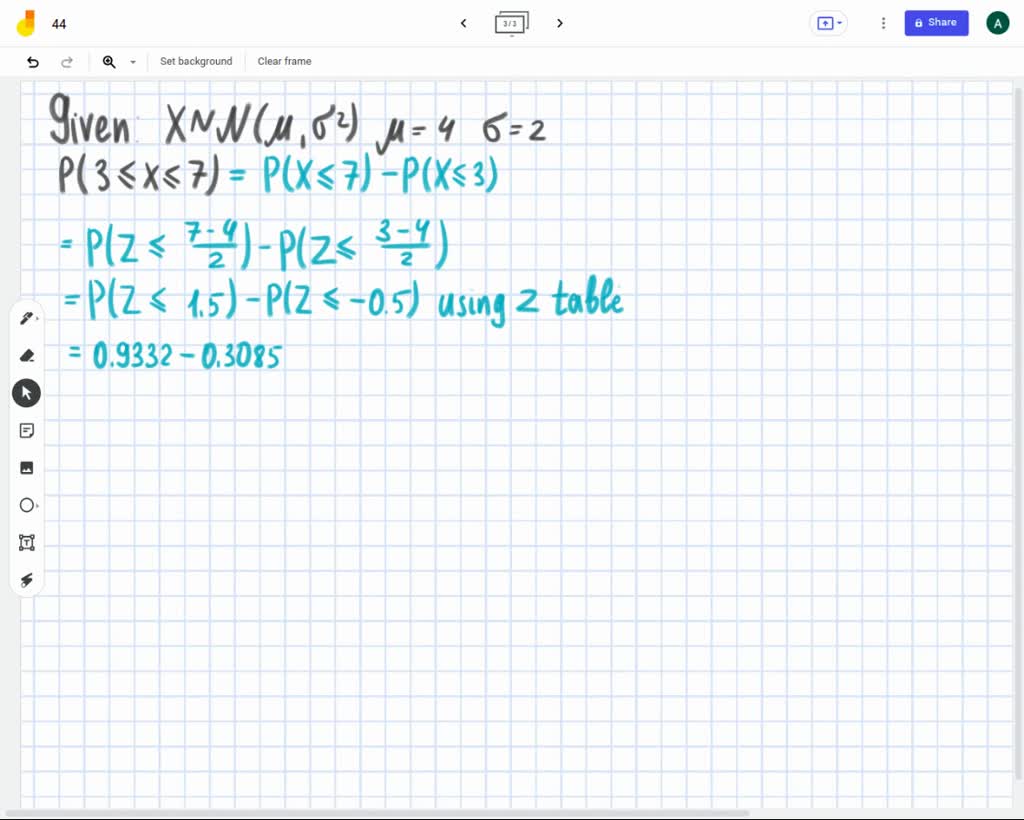 44
3/3
Share
A
Set background
Clear frame
Given: X~N(μ,σ²) μ=4 σ=2
P(3≤x≤7)=P(X≤7)-P(X≤3)
=P(Z≤\frac{7-4}{2})-P(Z≤\frac{3-4}{2})
=P(Z≤1.5)-P(Z≤-0.5) using z table
=0.9332-0.3085